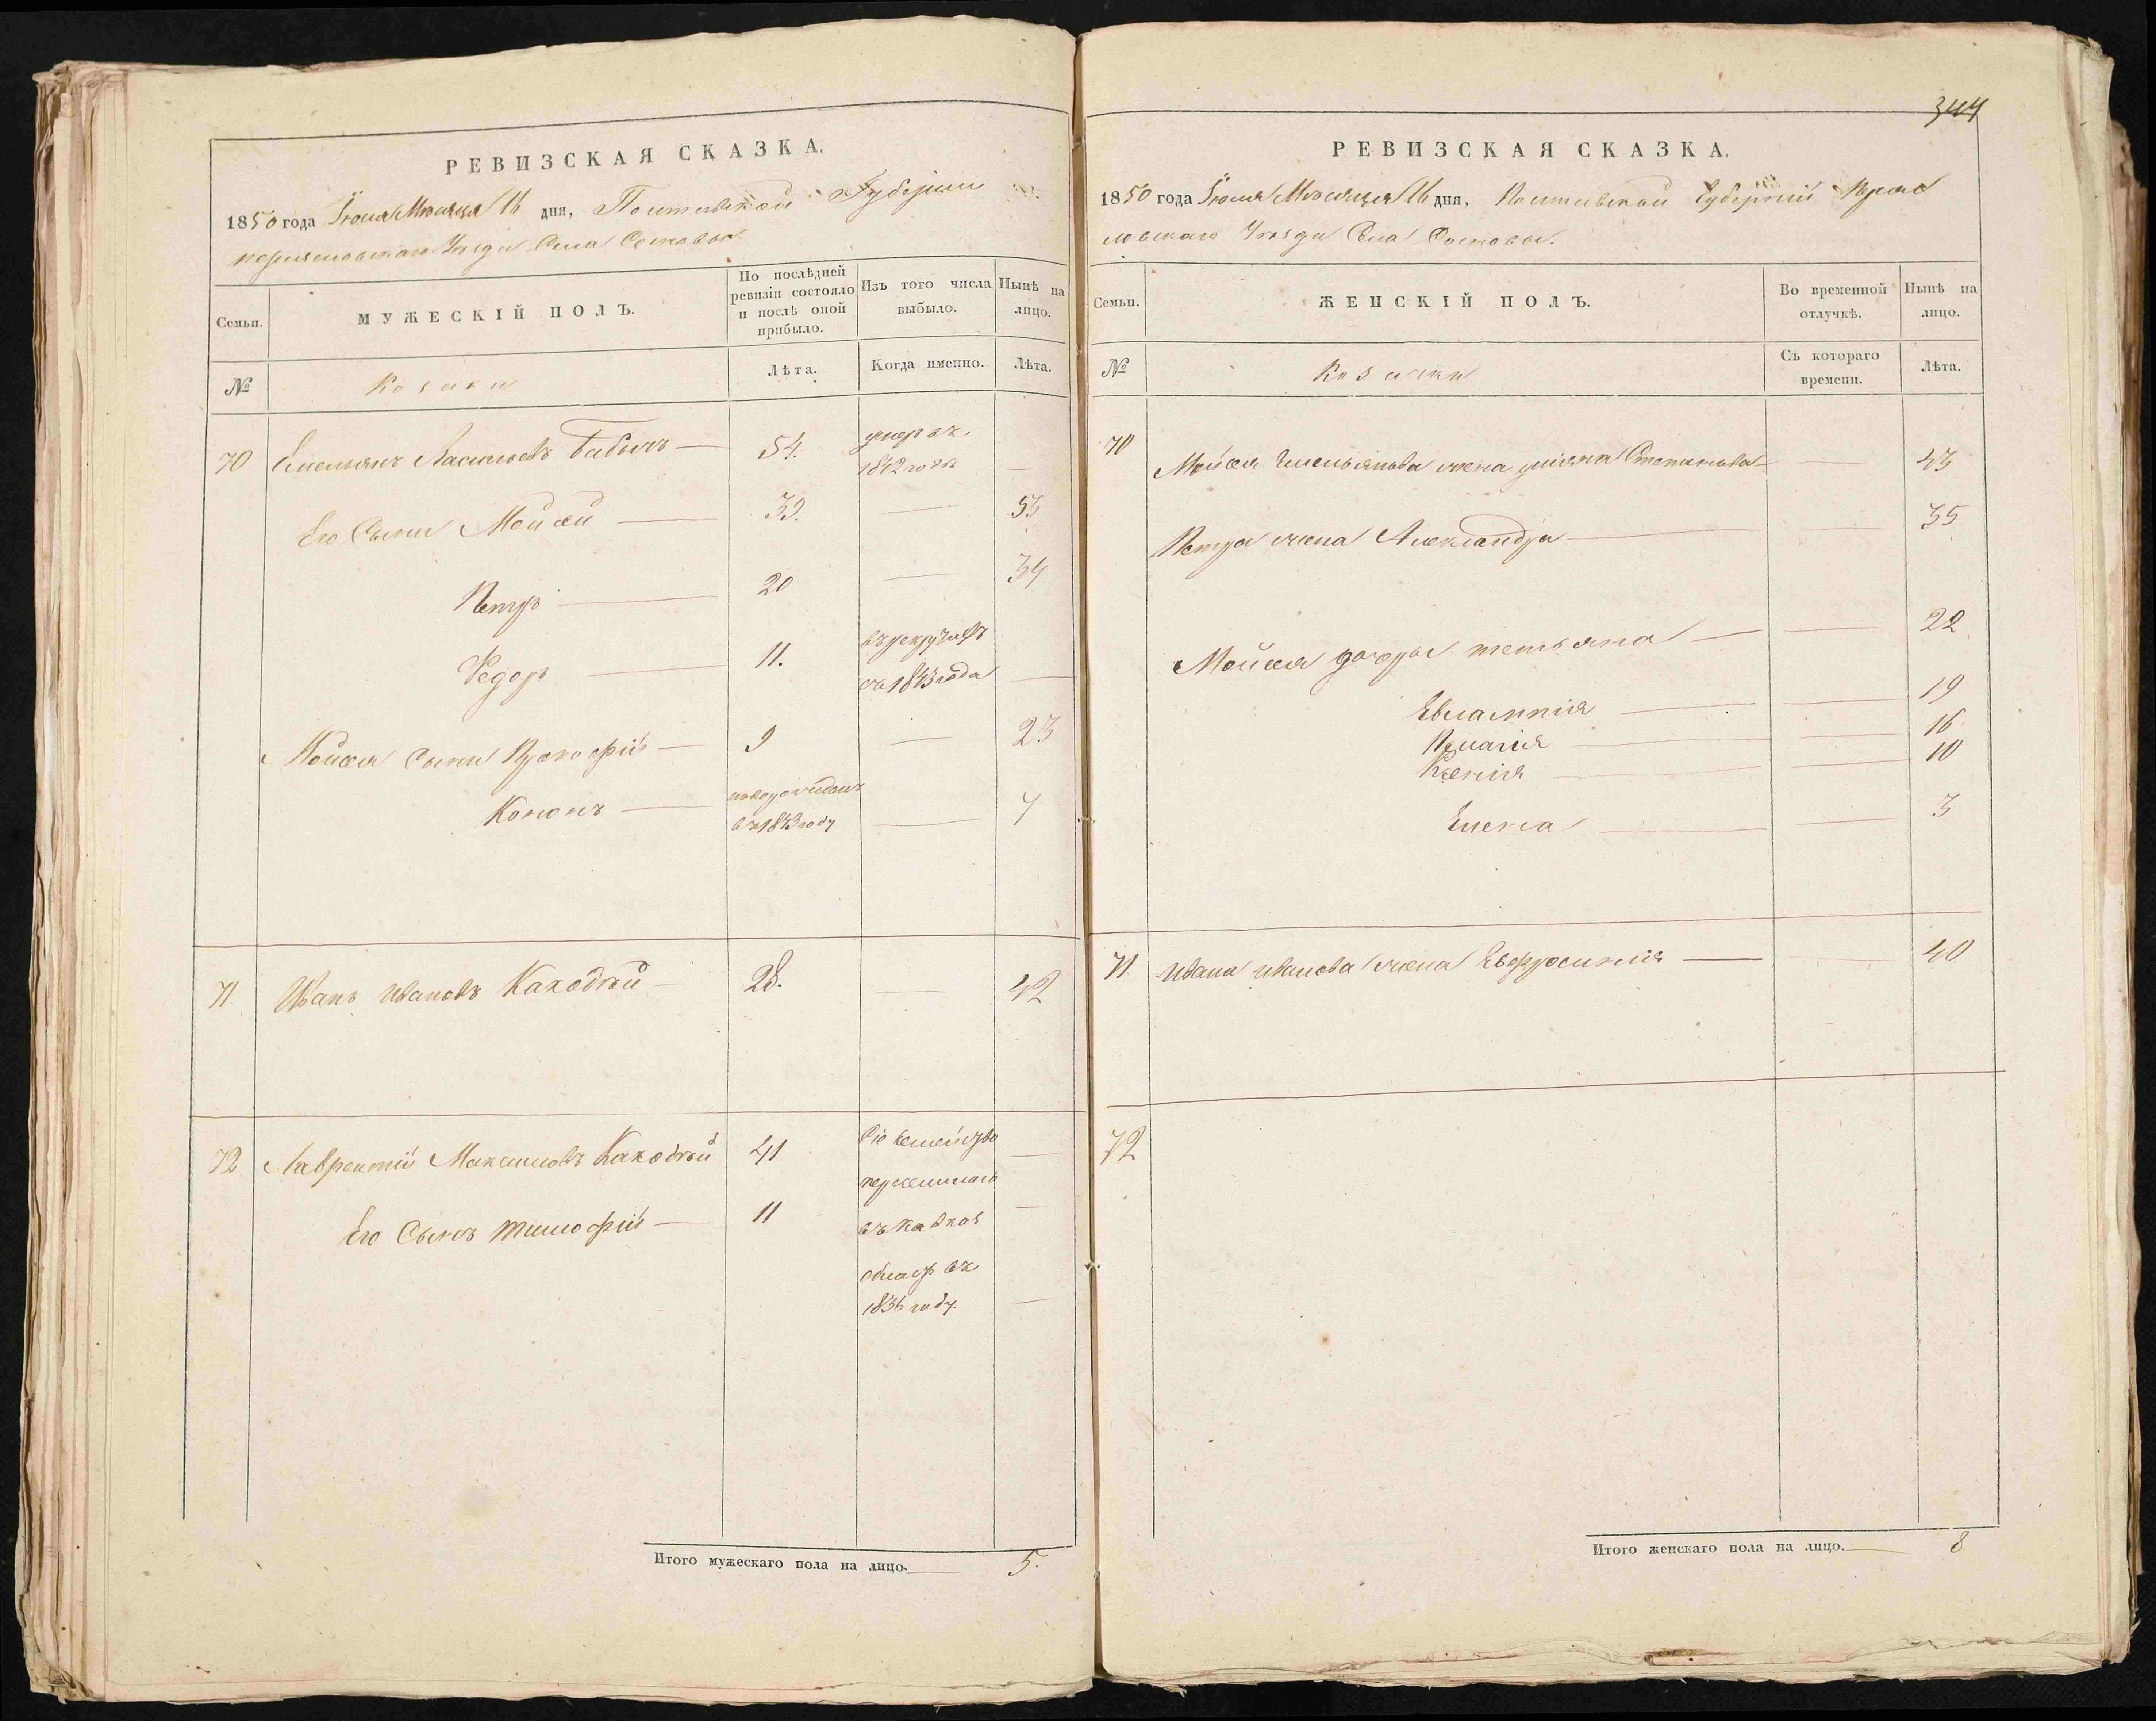 РЕВИЗСКАЯ СКАЗКА.
1850 года Іюля Месяца 16 дня, Полтавской Губерніи
переяславскаго Уезда Села Сосновы
Семьи.
МУЖЕСКІЙ ПОЛЪ.
По послѣдней ревизіи состояло и послѣ оной прибыло.
Изъ того числа выбыло.
Нынѣ на лицо.
№
Козаки
Лѣта.
Когда именно.
Лѣта.
70 Емельянъ Васильевъ Бабичъ — 54. умеръ въ 1842 году —
Его Сыны Мойсей — 39. — 53
Петръ — 20 — 34
Федоръ — 11. въ рекрутахъ съ 1843 года —
Мойсея Сыны Прокофій — 9 — 23
Кононъ — новорожденъ въ 1843 году — 7
71 Иванъ Ивановъ Каходкій — 28. — 42
72 Лаврентій Максимовъ Каходкій 41 Сіе Семейство —
Его Сынъ Тимофій — 11 переселилось —
въ Кавказ
област въ
1836 году. —
Итого мужескаго пола на лицо. — 5.
344
РЕВИЗСКАЯ СКАЗКА.
1850 года Іюля Месяца 16 дня, Полтавской Губерніи Переяс
ловскаго Уезда Села Сосновы.
Семьи.
ЖЕНСКІЙ ПОЛЪ.
Во временной отлучкѣ.
Нынѣ на лицо.
№
Козачки
Съ котораго времени.
Лѣта.
70 Мойсея Емельянова жена Степанова — 43
Петра жена Александра — 35
Мойсея дочеры Тетьяна — 22
Евлампія — 19
Пелагія — 16
Ксенія — 10
Елена — 3
71 Ивана Иванова жена Евфросинія — 40
72
Итого женскаго пола на лицо. — 8